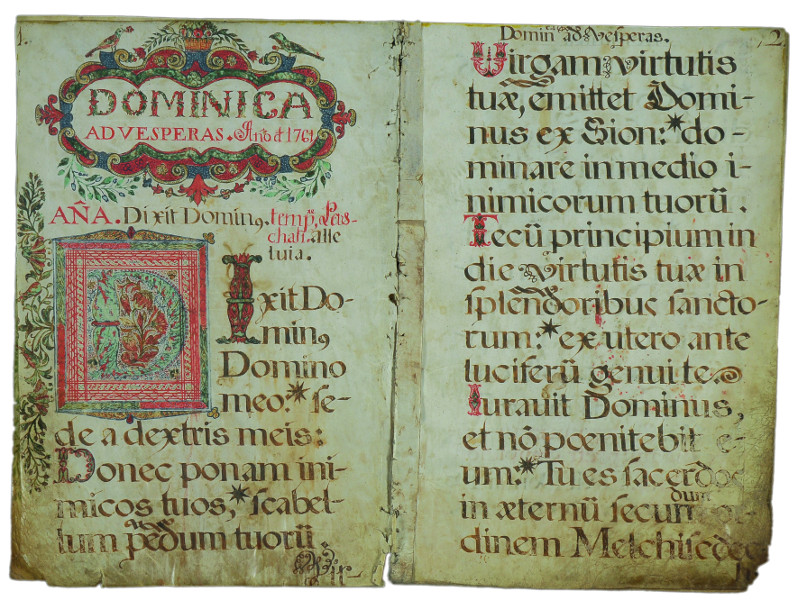 1.
DOMINICA
AD VESPERAS. Año d 1761
AÑA. Dixit Domin9. temp. Pas-
chali. alle
luia.
Dixit Do-
min9
Domino
meo:* se-
de a dextris meis:
Donec ponam ini-
micos tuos,* scabel-
lum pedum tuorū.
Vir
2.
Domin. ad Vesperas.
Virgam virtutis
tuæ, emittet Domi-
nus ex Sion:* do-
minare in medio i-
nimicorum tuorū.
Tecū principium in
die virtutis tuæ in
splendoribus sancto-
rum:* ex utero ante
luciferū genui te
Iurauit Dominus,
et nō pœnitebit e-
um:* Tu es sacerdos
in æternū secundum or-
dinem Melchisedec